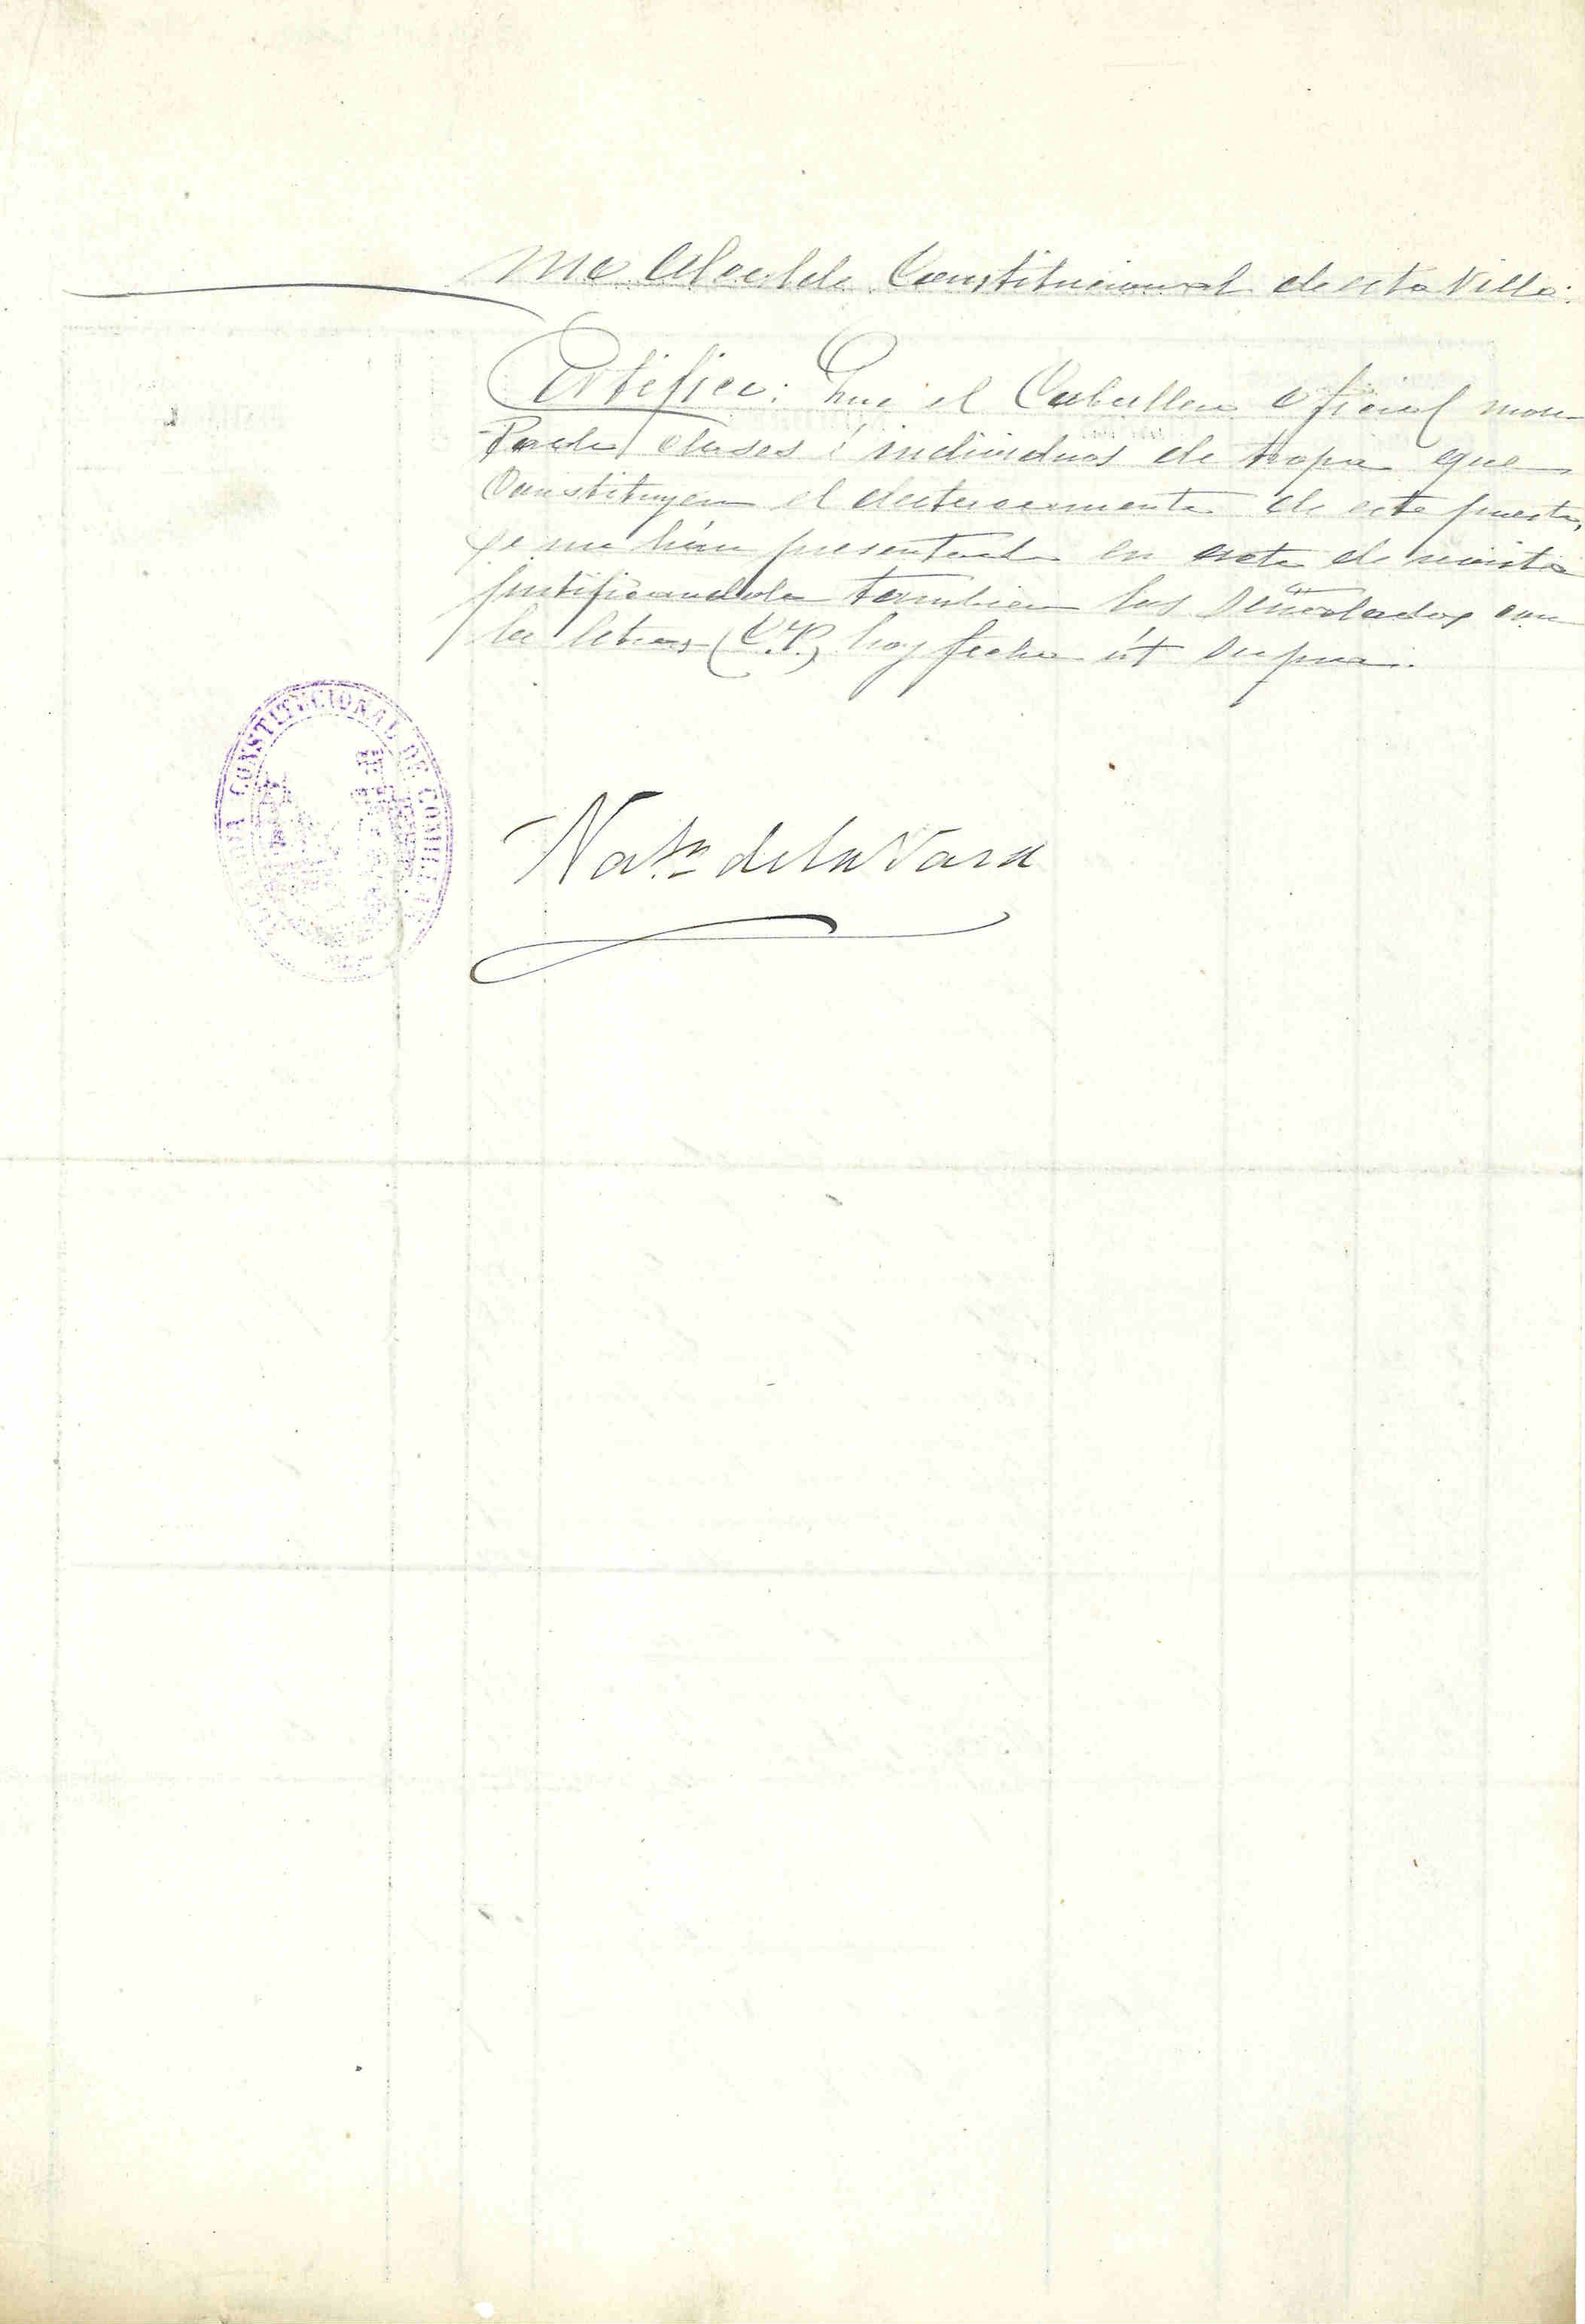 Alcalde Constitucional de esta Villa.
Certifico: Que el Caballero Oficial mon-
tado clases é individuos de tropa que
Constituyen el destacamento de este puesto,
se me hán presentado en acto de revista
justificandola tambien los Señalados con
las letras (C.P.) hoy fecha út supra.
CONSTITUCIONAL DE COMILLAS
de la Vara